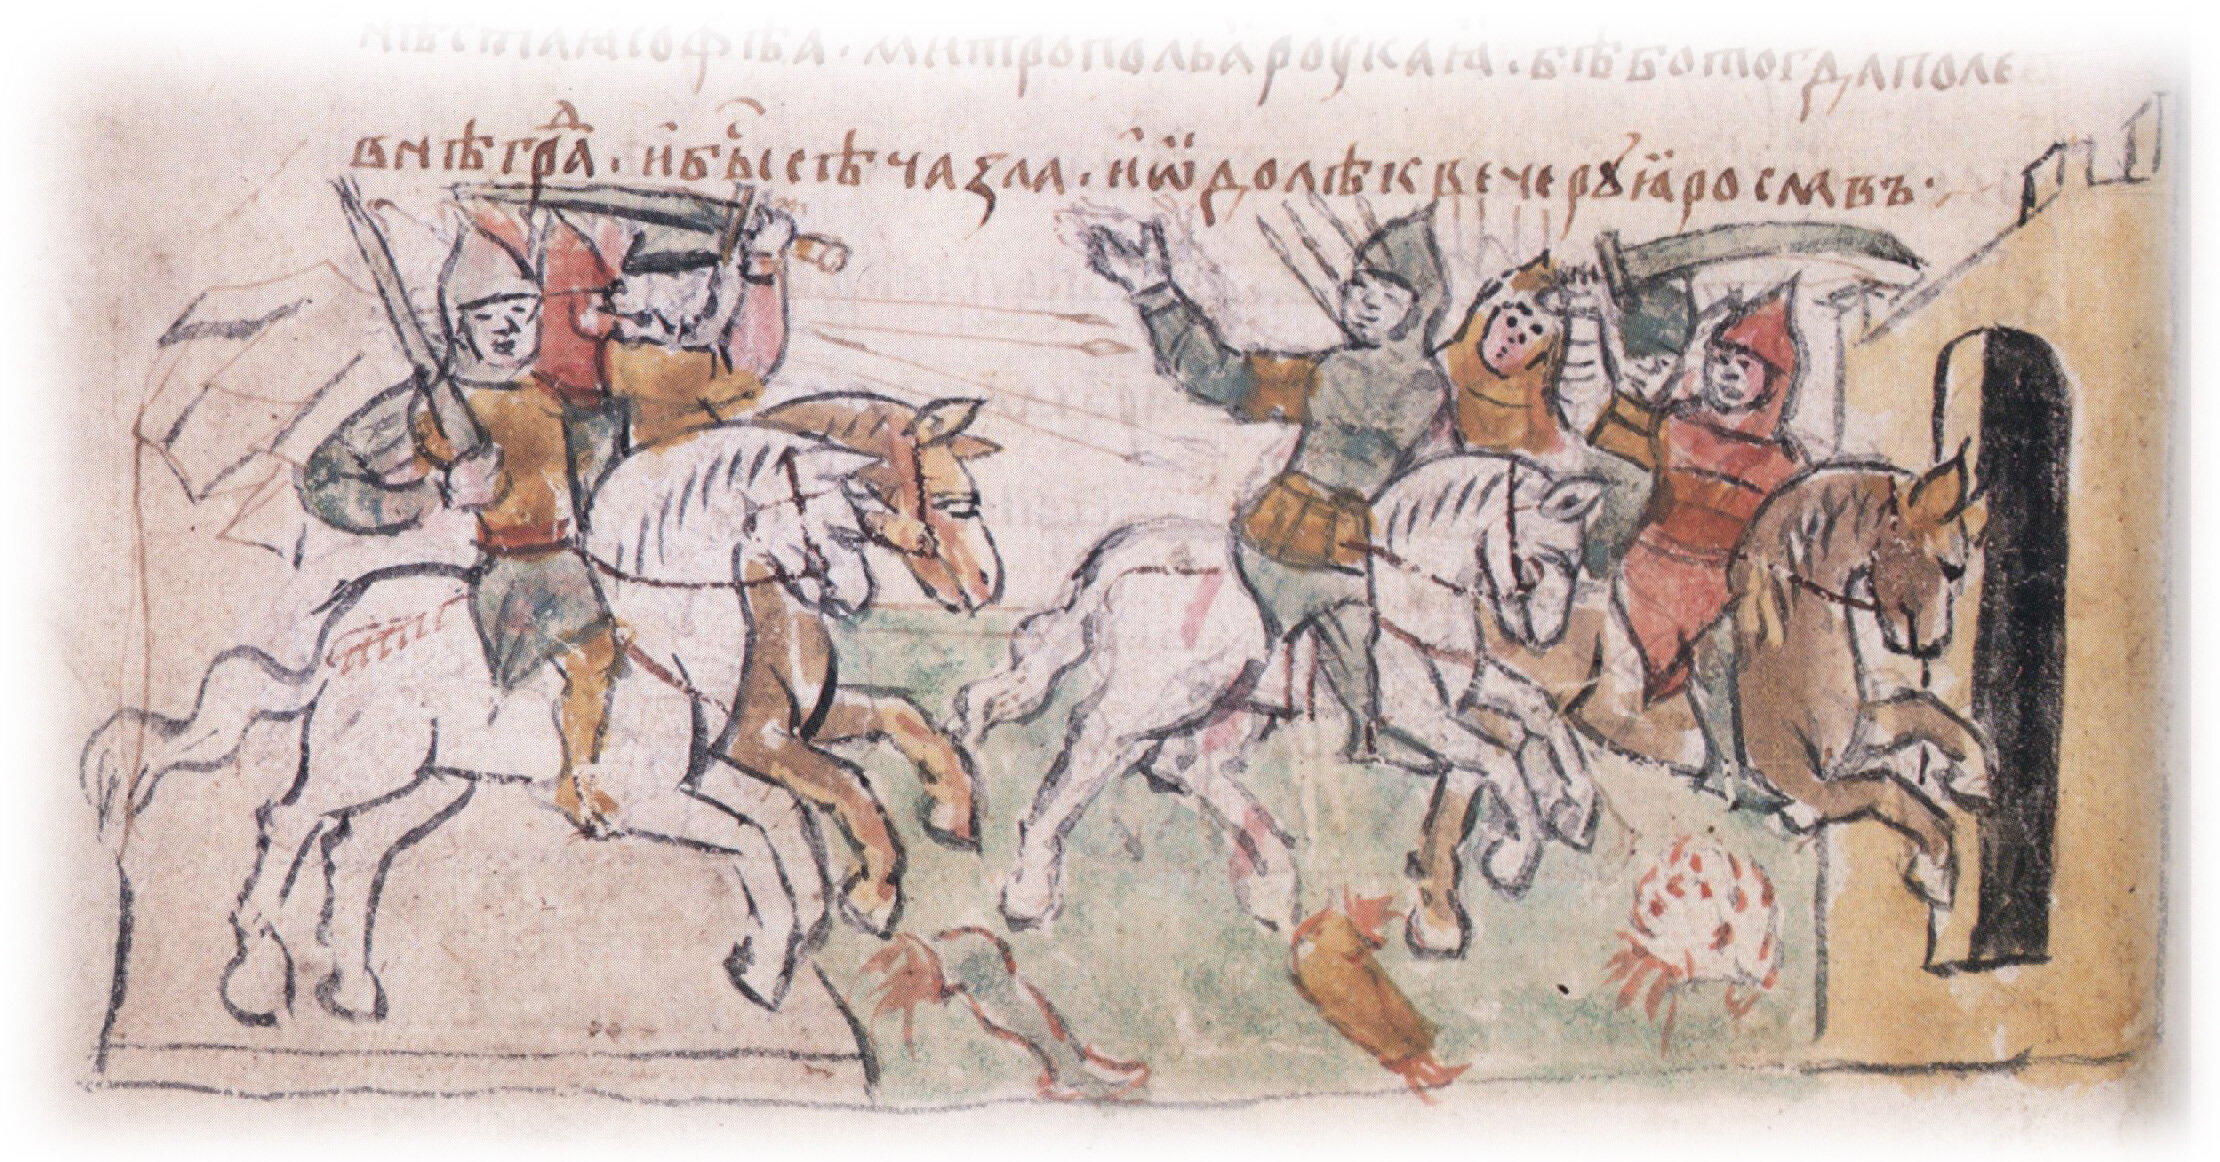 нѣ стаꙗ софѣа · митропольꙗ роускаꙗ · бѣ бо тогда поле
внѣ граⷣ · и быⷭ сѣча зла · и ѿдолѣ к вечерꙋ ꙗрославъ ·